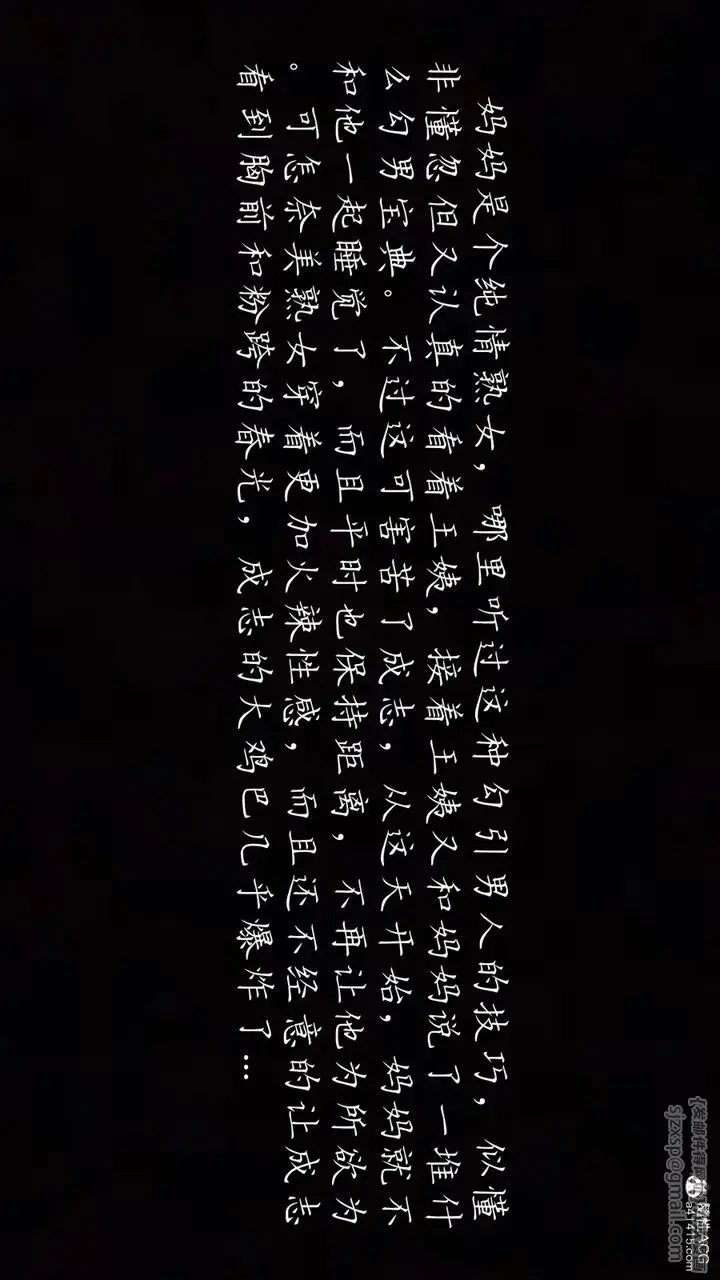 妈妈是个纯情熟女，哪里听过这种勾引男人的技巧，似懂
非懂忽但又认真的看着王姨，接着王姨又和妈妈说了一堆什
么勾男宝典。不过这可害苦了成志，从这天开始，妈妈就不
和他一起睡觉了，而且平时也保持距离，不再让他为所欲为
。可怎奈美熟女穿着更加火辣性感，而且还不经意的让成志
看到胸前和粉跨的春光，成志的大鸡巴几乎爆炸了...
sjzxsp@gmail.com
ACG
a41415.com